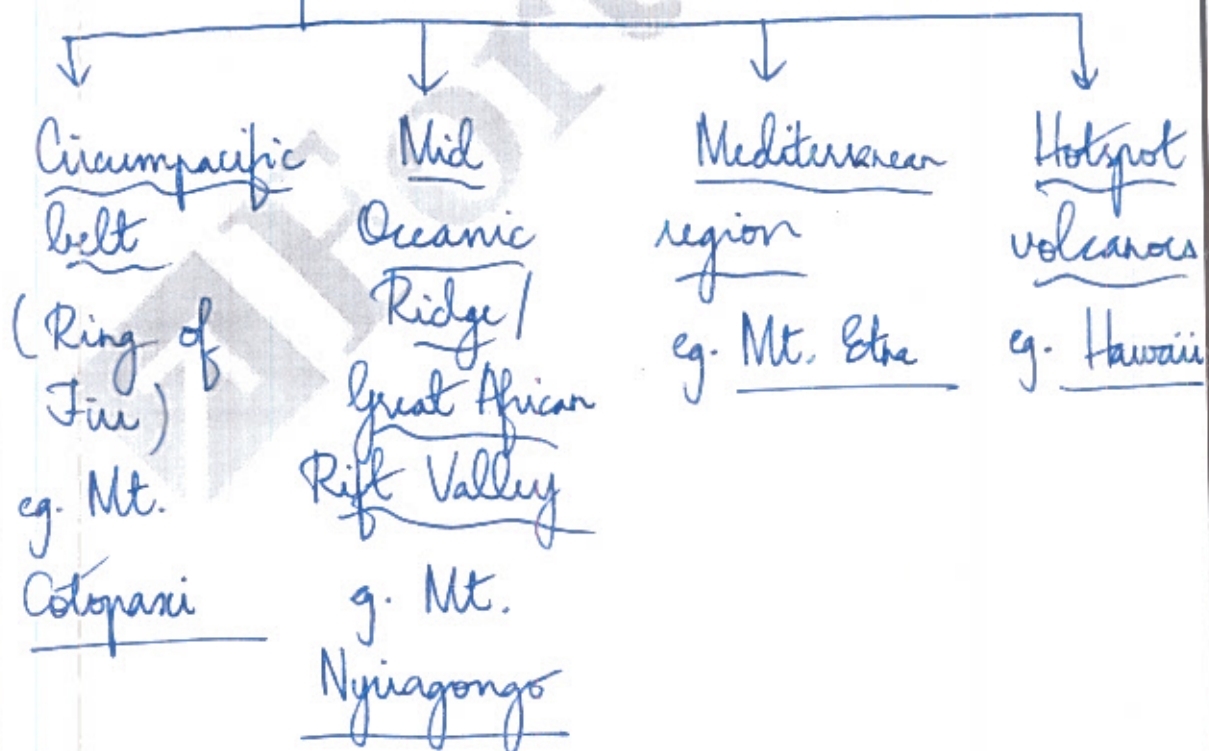 Circumpacific
belt
(Ring of
Fire)
eg. Mt.
Cotopaxi
Mid
Oceanic
Ridge/
Great African
Rift Valley
g. Mt.
Nyiragongo
Mediterranean
region
eg. Mt. Etna
Hotspot
volcanoes
eg. Hawaii